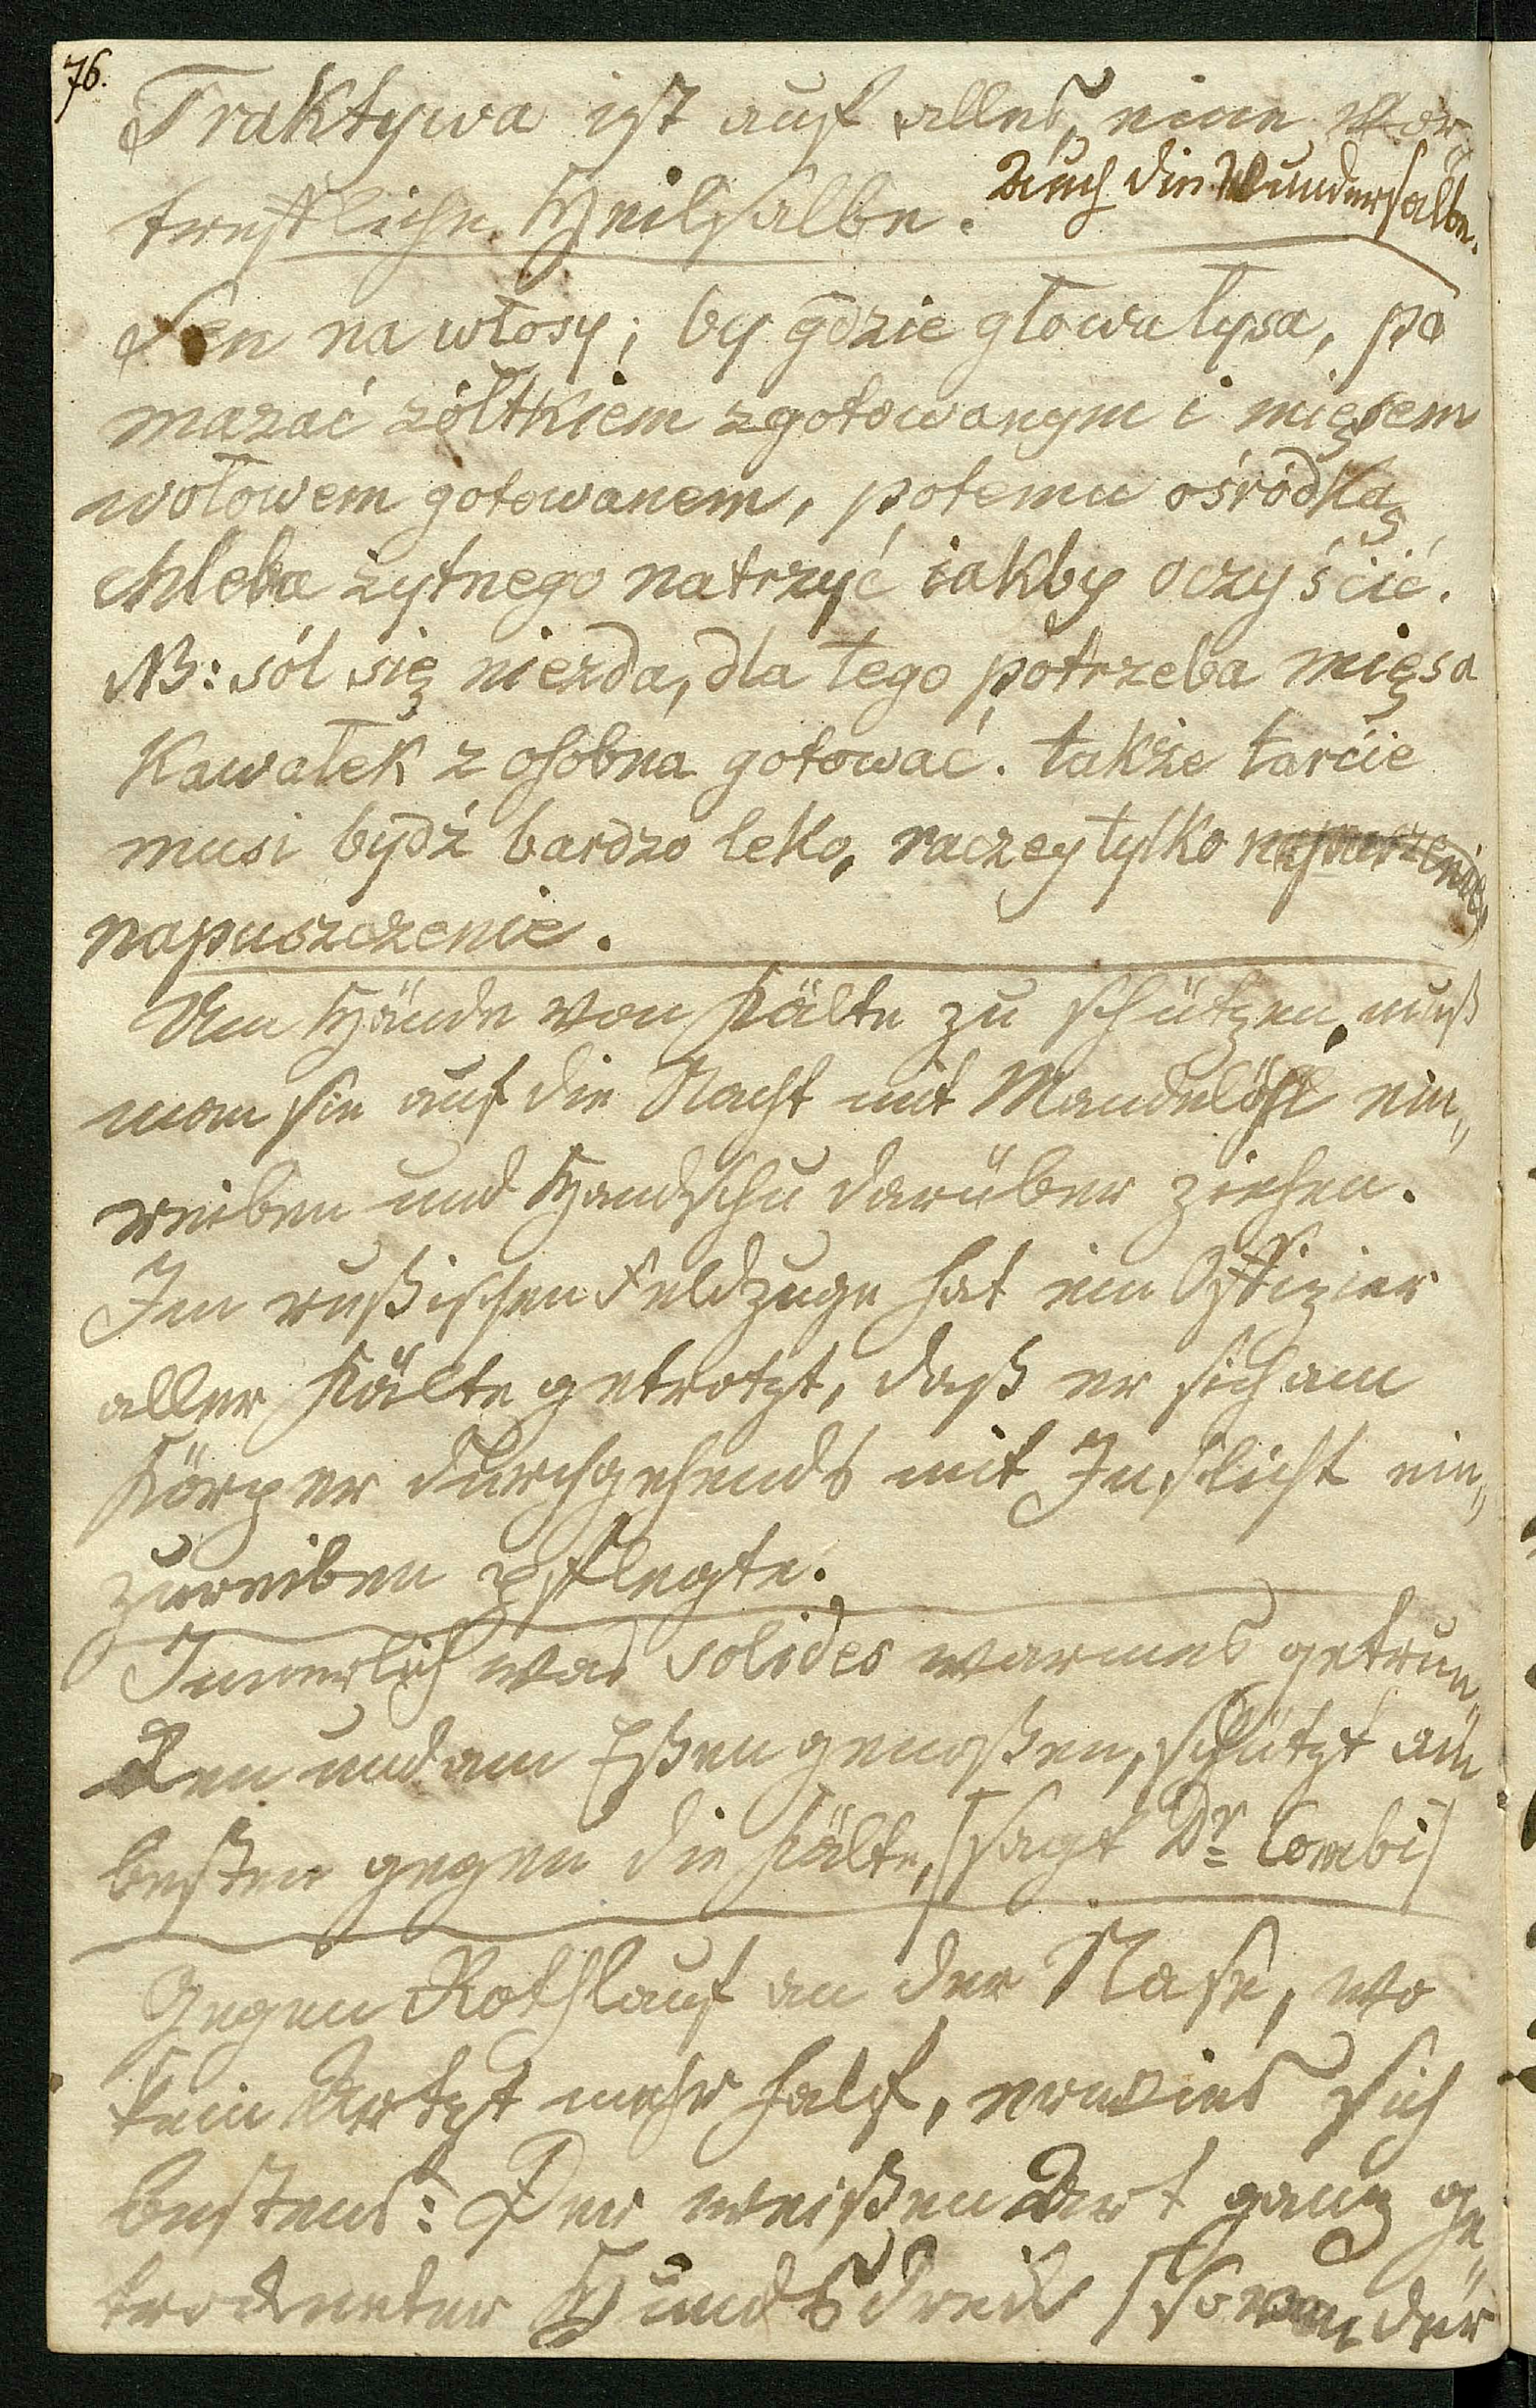 76.
Traktywa ist auf alles eine vor„
treffliche Heilsalbe. Auch die Wundersalbe.
Sen na włosy; by gdzie głowa łysa, po
mazać żółtkiem zgotowanym i mięsem
wołowem gotowanem, potemu ośródką
chleba żytnego natrzyć iakby oczyścić.
NB: sól się niezda, dla tego potrzeba mięsa
kawałek z osobna gotować. także tarcie
musi bydź bardzo leko, raczey tylko
napuszczenie.
Um Hände von Kälte zu schützen, muß
man sie auf die Nacht mit Mandelöhl ein„
reiben und Handschu darüber ziehen.
Im rußischen Feldzuge hat ein Offizier
aller Kälte getrotzt, daß er sich am
Körper durchgehends mit Inslicht ein„
zureiben pflegte.
Innerlich was solides warmes getrun„
ken und am Eßen genoßen, schützt am
besten gegen die Kälte, /sagt Dr. Combi/
Gegen Rothlauf an der Nase, wo
kein Artzt mehr half, erwies sich
bestens: Der weißen Art ganz ge„
trockneter Hundsdreck / wovon der